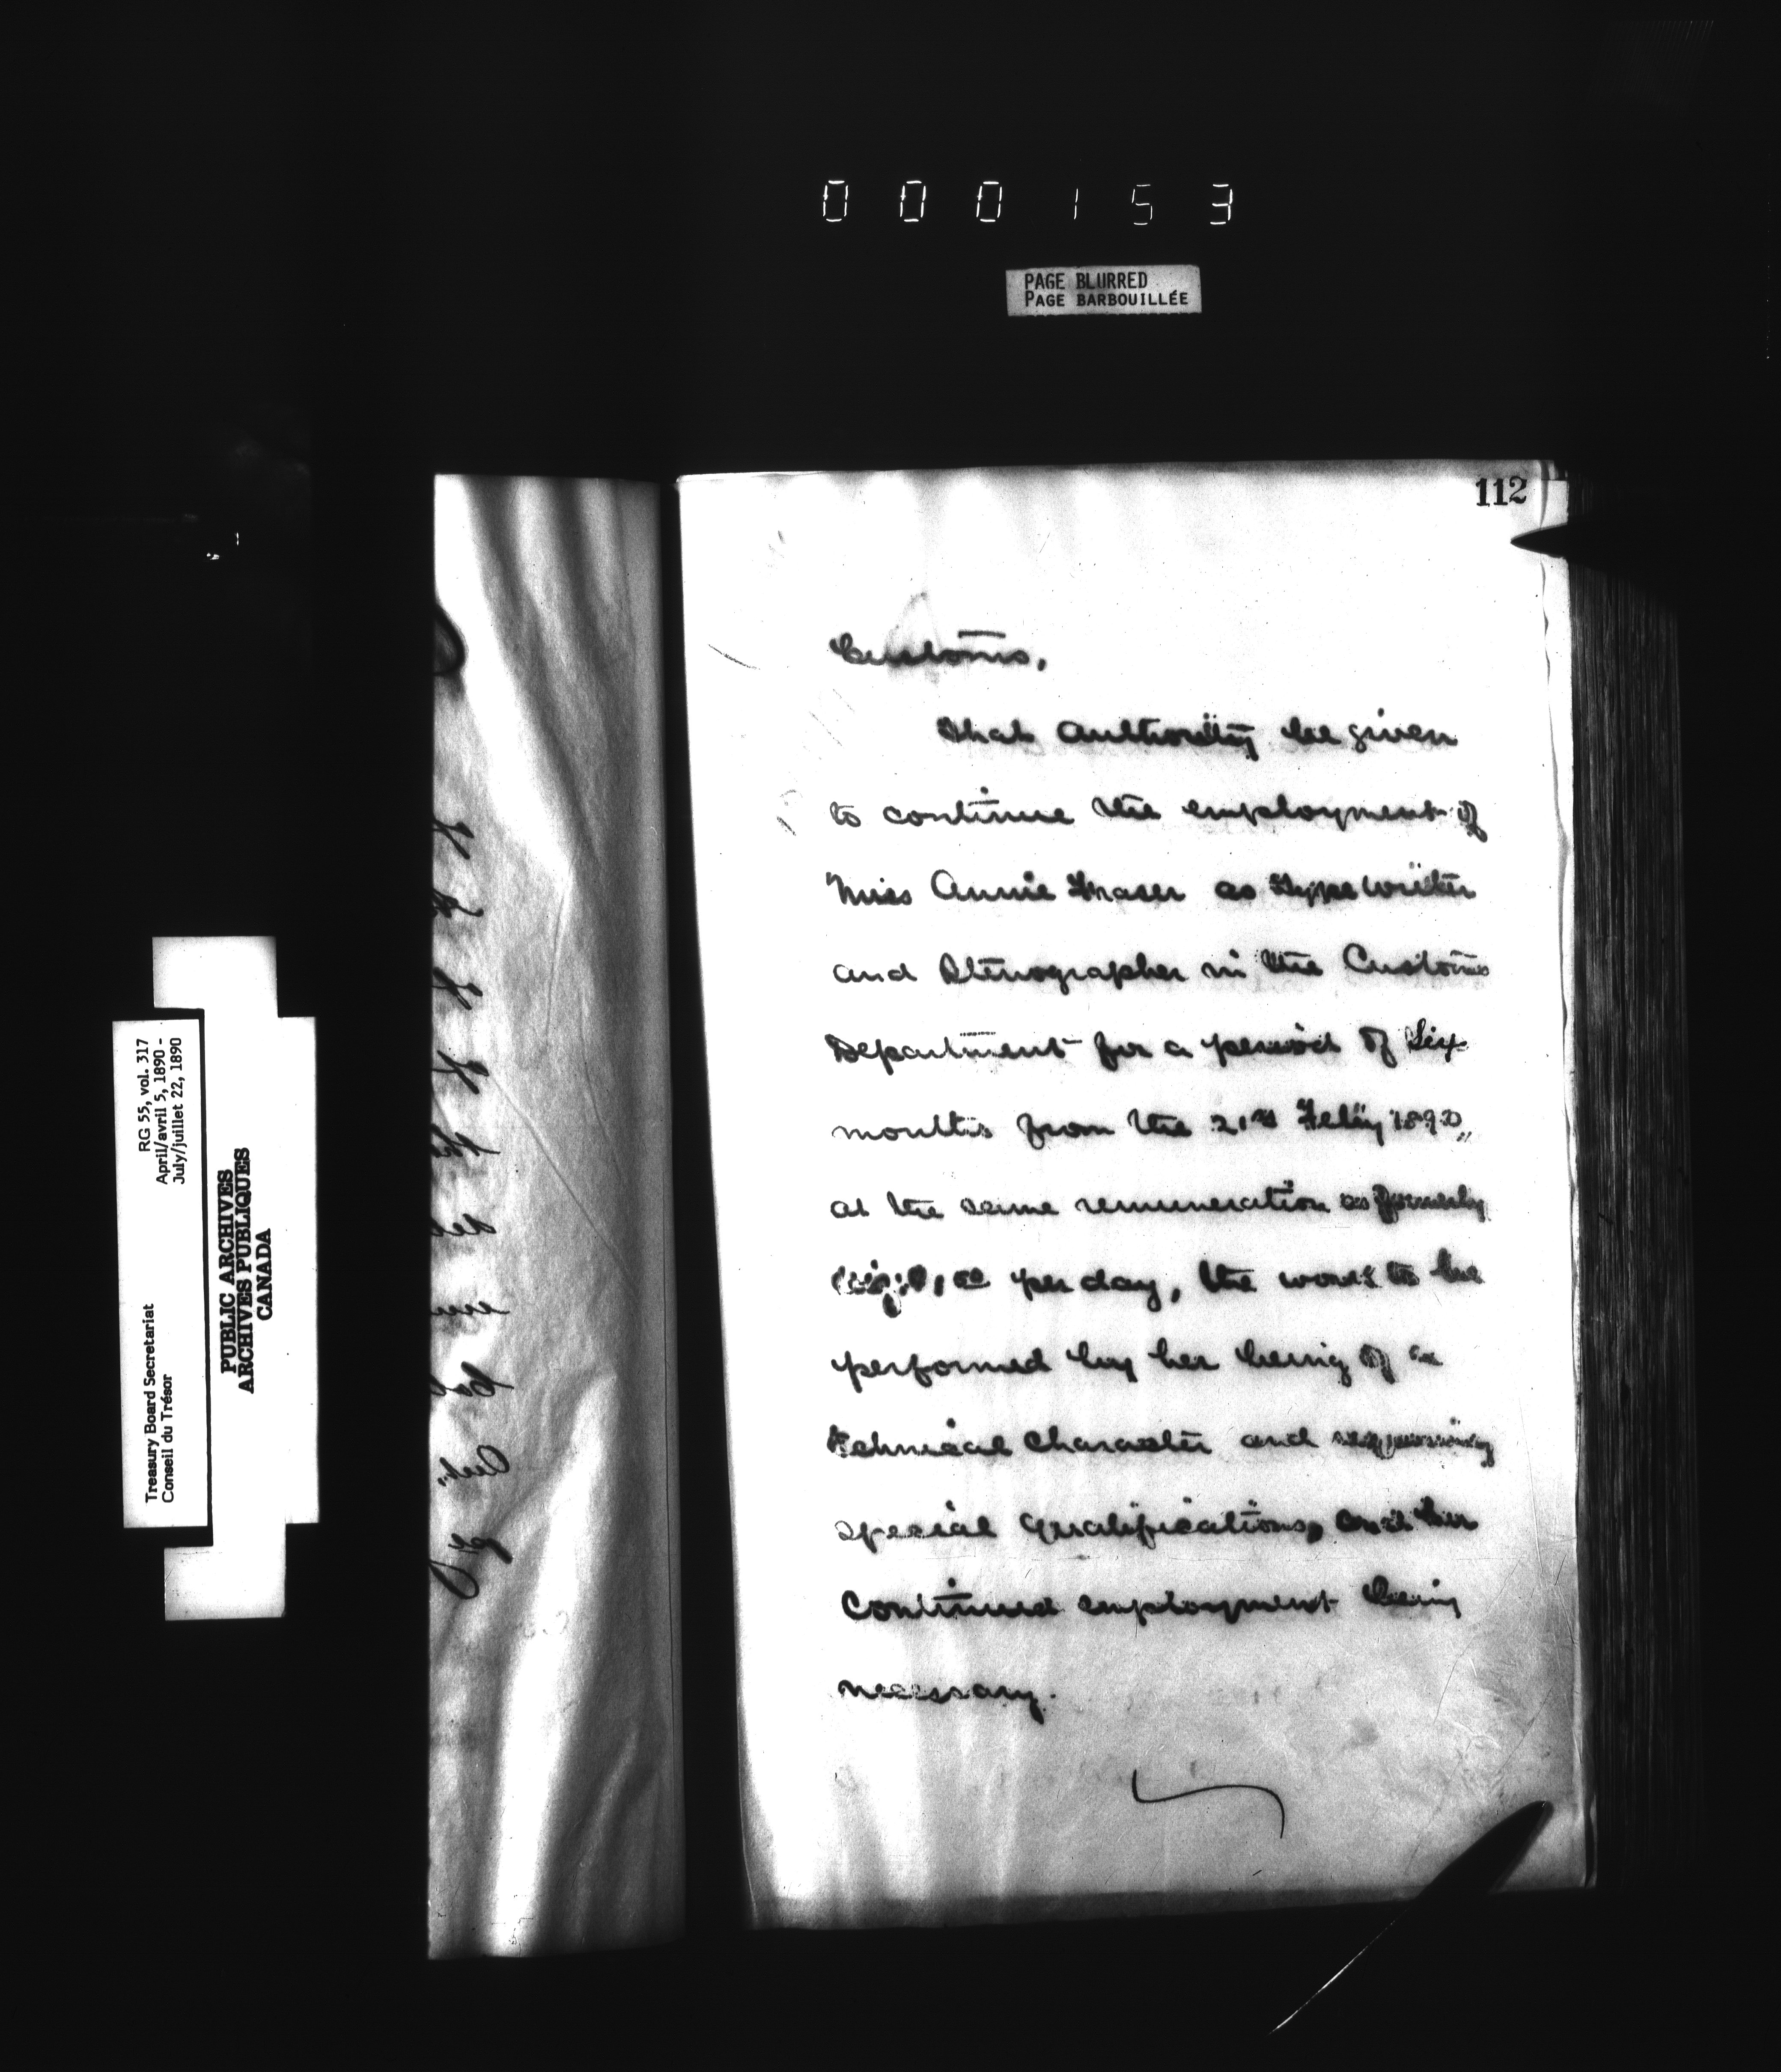 000153
PAGE BLURRED
PAGE BARBOUILLÉE
112
RG 55, vol. 317
April/avril 5, 1890 -
July/juillet 22, 1890
Treasury Board Secretariat
Conseil du Trésor
PUBLIC ARCHIVES
ARCHIVES PUBLIQUES
CANADA
Customs,
That Authority be given
to continue the employment of
Miss Annie Fraser as Typewriter
and Stenographer in the Customs
Department for a period of Six
months from the 21st Feby 1890,
at the same remuneration as formerly
per day, the work to be
performed by her being of a
technical Character and requiring
special qualifications, and her
Continued employment being
necessary.